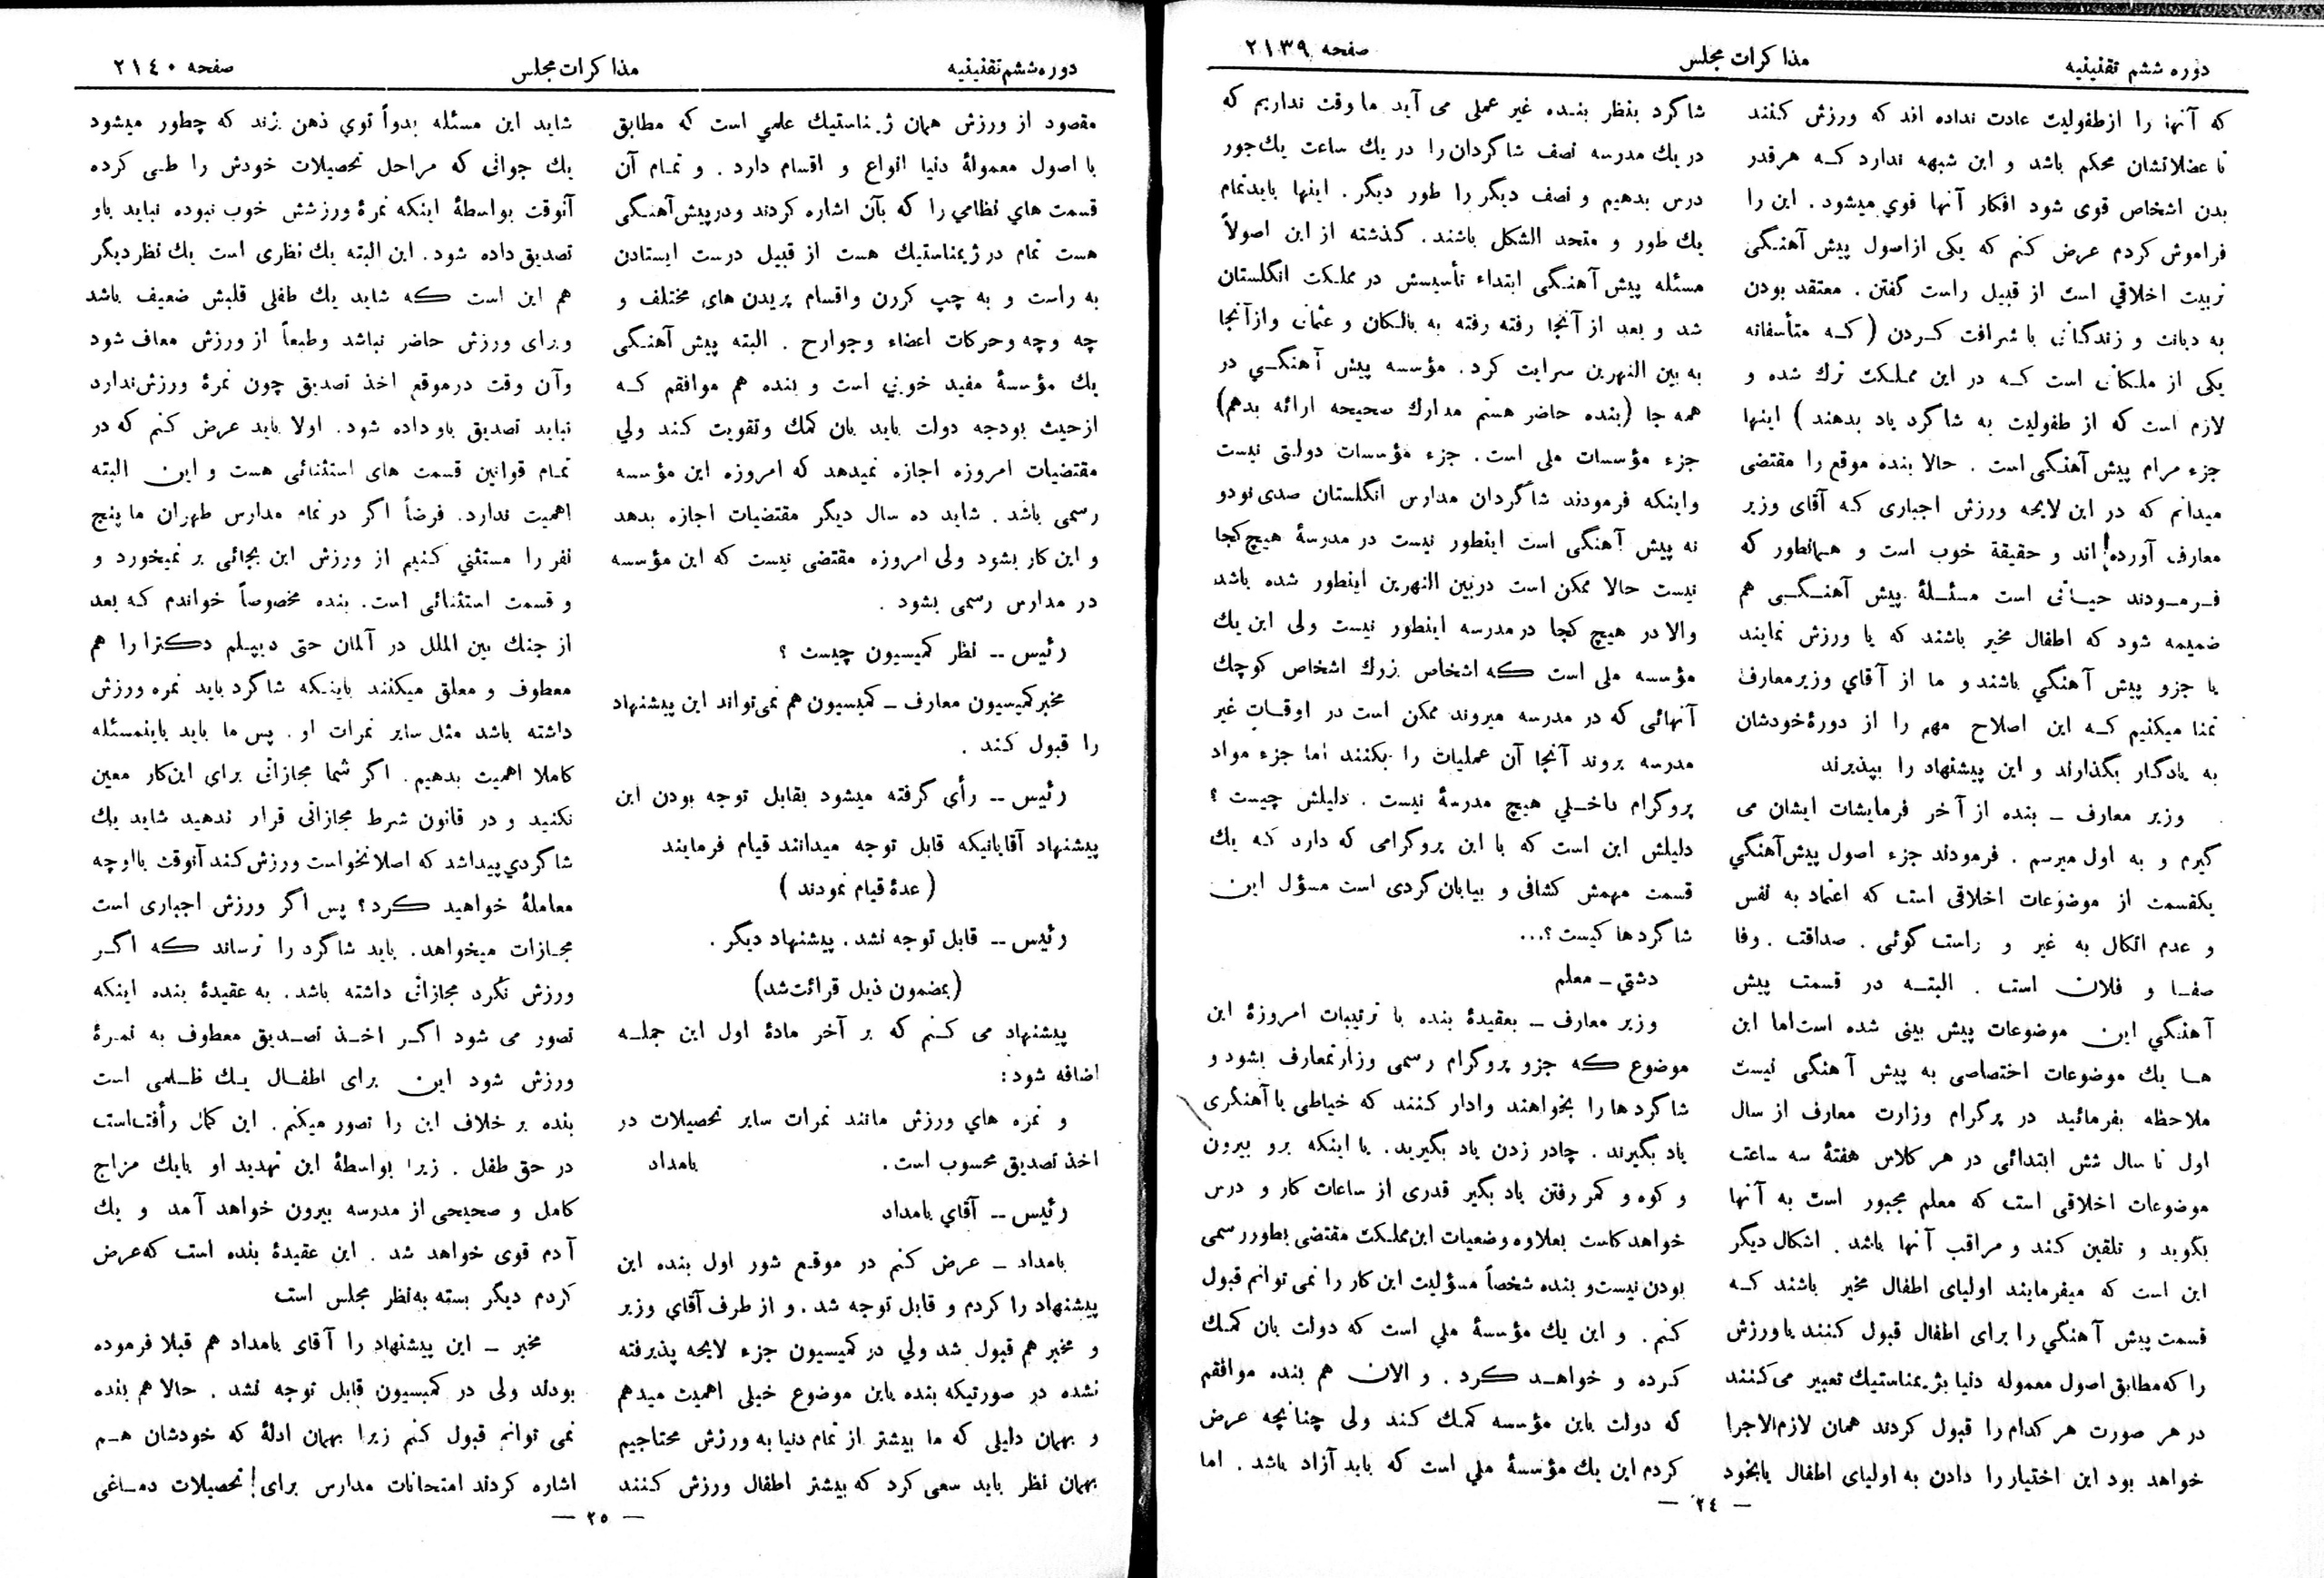 دوره ششم تقنینیه
مذاکرات مجلس
صفحه ۲۱۳۹
که آنها را از طفولیت عادت نداده اند که ورزش کنند
تا عضلاتشان محکم باشد و این شبهه ندارد که هر قدر
بدن اشخاص قوی شود افکار آنها قوی میشود . این را
فراموش کردم عرض کنم که یکی از اصول پیش آهنگی
تربیت اخلاقی است از قبیل راست گفتن . معتقد بودن
به دیانت و زندگانی با شرافت کردن ( که متأسفانه
یکی از ملکاتی است که در این مملکت ترك شده و
لازم است که از طفولیت به شاگرد یاد بدهند ) اینها
جزء مرام پیش آهنگی است . حالا بنده موقع را مقتضی
میدانم که در این لایحه ورزش اجباری که آقای وزیر
معارف آورده اند و حقیقة خوب است و همانطور که
فرمودند حیاتی است مسئلهٔ پیش آهنگی هم
ضمیمه شود که اطفال مخیر باشند که یا ورزش نمایند
یا جزو پیش آهنگی باشند و ما از آقای وزیر معارف
تمنا میکنیم که این اصلاح مهم را از دورهٔ خودشان
به یادگار بگذارند و این پیشنهاد را بپذیرند
وزیر معارف ـ بنده از آخر فرمایشات ایشان می
گیرم و به اول میرسم . فرمودند جزء اصول پیش آهنگی
یکقسمت از موضوعات اخلاقی است که اعتماد به نفس
و عدم اتکال به غیر و راست گوئی . صداقت . وفا
صفا و فلان است . البته در قسمت پیش
آهنگی این موضوعات پیش بینی شده است اما این
ها یك موضوعات اختصاصی به پیش آهنگی نیست
ملاحظه بفرمائید در پرگرام وزارت معارف از سال
اول تا سال شش ابتدائی در هر کلاس هفتهٔ سه ساعت
موضوعات اخلاقی است که معلم مجبور است به آنها
بگوید و تلقین کند و مراقب آنها باشد . اشکال دیگر
این است که میفرمایند اولیای اطفال مخیر باشند که
قسمت پیش آهنگی را برای اطفال قبول کنند یا ورزش
را که مطابق اصول معموله دنیا بژیمناستیك تعبیر می کنند
در هر صورت هر کدام را قبول کردند همان لازم الاجرا
خواهد بود این اختیار را دادن به اولیای اطفال یا بخود
شاگرد بنظر بنده غیر عملی می آید ما وقت نداریم که
در یك مدرسه نصف شاگردان را در یك ساعت یك جور
درس بدهیم و نصف دیگر را طور دیگر . اینها باید تمام
یك طور و متحد الشکل باشند . گذشته از این اصولاً
مسئله پیش آهنگی ابتداء تأسیسش در مملکت انگلستان
شد و بعد از آنجا رفته رفته به بالکان و عثمانی و از آنجا
به بین النهرین سرایت کرد . مؤسسه پیش آهنگی در
همه جا (بنده حاضر هستم مدارك صحیحه ارائه بدهم)
جزء مؤسسات ملی است . جزء مؤسسات دولتی نیست
و اینکه فرمودند شاگردان مدارس انگلستان صدی نود و
نه پیش آهنگی است اینطور نیست در مدرسهٔ هیچ کجا
نیست حالا ممکن است در بین النهرین اینطور شده باشد
والا در هیچ کجا در مدرسه اینطور نیست ولی این یك
مؤسسه ملی است که اشخاص بزرك اشخاص کوچك
آنهائی که در مدرسه میروند ممکن است در اوقات غیر
مدرسه بروند آنجا آن عملیات را بکنند اما جزء مواد
پروگرام داخلی هیچ مدرسهٔ نیست . دلیلش چیست ؟
دلیلش این است که با این پروگرامی که دارد که یك
قسمت مهمش کشافی و بیابان گردی است مسؤل این
شاگردها کیست ؟...
دشتی ـ معلم
وزیر معارف ـ بعقیدهٔ بنده با ترتیبات امروزهٔ این
موضوع که جزو پروگرام رسمی وزارتمعارف بشود و
شاگردها را بخواهند وادار کنند که خیاطی یا آهنگری
یاد بگیرند . چادر زدن یاد بگیرید . یا اینکه برو بیرون
و کوه و کمر رفتن یاد بگیر قدری از ساعات کار و درس
خواهد کاست بعلاوه وضعیات این مملکت مقتضی بطور رسمی
بودن نیست و بنده شخصاً مسؤلیت این کار را نمی توانم قبول
کنم . و این یك مؤسسهٔ ملی است که دولت بان کمك
کرده و خواهد کرد . و الان هم بنده موافقم
که دولت باین مؤسسه کمك کند ولی چنانچه عرض
کردم این یك مؤسسهٔ ملی است که باید آزاد باشد . اما
— ۲٤ —
دوره ششم تقنینیه
مذاکرات مجلس
صفحه ۲۱٤۰
مقصود از ورزش همان ژیمناستیك علمی است که مطابق
با اصول معمولهٔ دنیا انواع و اقسام دارد . و تمام آن
قسمت های نظامی را که بآن اشاره کردند و در پیش آهنگی
هست تمام در ژیمناستیك هست از قبیل درست ایستادن
به راست و به چپ کررن و اقسام پریدن های مختلف و
چه وچه وحرکات اعضاء وجوارح . البته پیش آهنگی
یك مؤسسهٔ مفید خوبی است و بنده هم موافقم که
از حیث بودجه دولت باید بان کمك وتقویت کند ولی
مقتضیات امروزه اجازه نمیدهد که امروزه این مؤسسه
رسمی باشد . شاید ده سال دیگر مقتضیات اجازه بدهد
و این کار بشود ولی امروزه مقتضی نیست که این مؤسسه
در مدارس رسمی بشود .
رئیس -- نظر کمیسیون چیست ؟
مخبر کمیسیون معارف ـ کمیسیون هم نمی تواند این پیشنهاد
را قبول کند .
رئیس -- رأی گرفته میشود بقابل توجه بودن این
پیشنهاد آقایانیکه قابل توجه میدانند قیام فرمایند
( عدهٔ قیام نمودند )
رئیس -- قابل توجه نشد . پیشنهاد دیگر .
(بمضمون ذیل قرائت شد)
پیشنهاد می کنم که بر آخر مادهٔ اول این جمله
اضافه شود :
و نمره های ورزش مانند نمرات سایر تحصیلات در
اخذ تصدیق محسوب است . بامداد
رئیس -- آقای بامداد
بامداد ـ عرض کنم در موقع شور اول بنده این
پیشنهاد را کردم و قابل توجه شد . و از طرف آقای وزیر
و مخبر هم قبول شد ولی در کمیسیون جزء لایحه پذیرفته
نشده در صورتیکه بنده باین موضوع خیلی اهمیت میدهم
و بهمان دلیلی که ما بیشتر از تمام دنیا به ورزش محتاجیم
بهمان نظر باید سعی کرد که بیشتر اطفال ورزش کنند
شاید این مسئله بدواً توی ذهن بزند که چطور میشود
یك جوانی که مراحل تحصیلات خودش را طی کرده
آنوقت بواسطهٔ اینکه نمرهٔ ورزشش خوب نبوده نباید باو
تصدیق داده شود . این البته یك نظری است یك نظر دیگر
هم این است که شاید یك طفلی قلبش ضعیف باشد
و برای ورزش حاضر نباشد وطبعاً از ورزش معاف شود
وآن وقت در موقع اخذ تصدیق چون نمرهٔ ورزش ندارد
نباید تصدیق باو داده شود . اولا باید عرض کنم که در
تمام قوانین قسمت های استثنائی هست و این البته
اهمیت ندارد . فرضاً اگر در تمام مدارس طهران ما پنج
نفر را مستثنی کنیم از ورزش این بجائی بر نمیخورد و
و قسمت استثنائی است . بنده مخصوصاً خواندم که بعد
از جنك بین الملل در آلمان حتی دیپلم دکترا را هم
معطوف و معلق میکنند باینکه شاگرد باید نمره ورزش
داشته باشد مثل سایر نمرات او . پس ما باید باینمسئله
کاملا اهمیت بدهیم . اگر شما مجازاتی برای این کار معین
نکنید و در قانون شرط مجازاتی قرار ندهید شاید یك
شاگردی پیداشد که اصلا نخواست ورزش کند آنوقت با او چه
معاملهٔ خواهید کرد ؟ پس اگر ورزش اجباری است
مجازات میخواهد . باید شاگرد را ترساند که اگر
ورزش نکرد مجازاتی داشته باشد . به عقیدهٔ بنده اینکه
تصور می شود اگر اخذ تصدیق معطوف به نمرهٔ
ورزش شود این برای اطفال یك ظلمی است
بنده بر خلاف این را تصور میکنم . این کمال رأفت است
در حق طفل . زیرا بواسطهٔ این تهدید او بایك مزاج
کامل و صحیحی از مدرسه بیرون خواهد آمد و یك
آدم قوی خواهد شد . این عقیدهٔ بنده است که عرض
کردم دیگر بسته به نظر مجلس است
مخبر ـ این پیشنهاد را آقای بامداد هم قبلا فرموده
بودند ولی در کمیسیون قابل توجه نشد . حالا هم بنده
نمی توانم قبول کنم زیرا بهمان ادلهٔ که خودشان هم
اشاره کردند امتحانات مدارس برای تحصیلات دماغی
— ۲٥ —